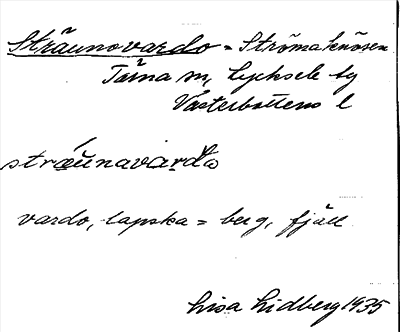 Sträunovardo = Strömaknösen
Tärna sn, Lycksele tg
Västerbottens l
stræunavardo
vardo, lapska = berg, fjäll
Lisa Lidberg 1935